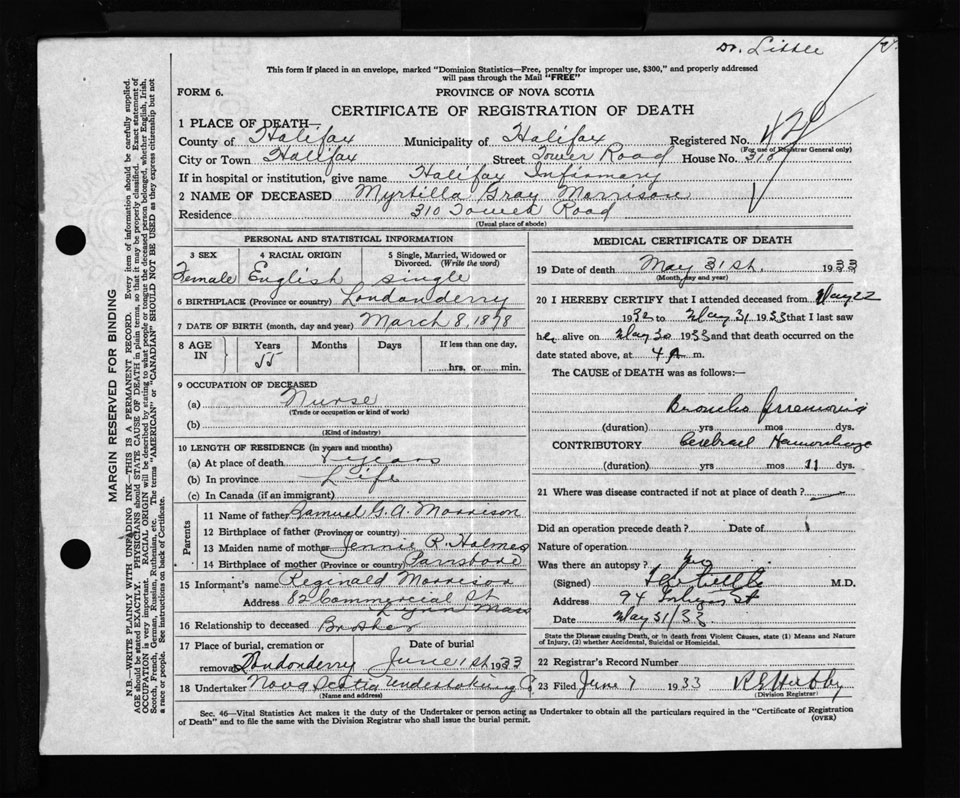 Dr. Little
This form if placed in an envelope, marked "Dominion Statistics—Free, penalty for improper use, $300," and properly addressed
will pass through the Mail "FREE"
FORM 6. PROVINCE OF NOVA SCOTIA
CERTIFICATE OF REGISTRATION OF DEATH
1 PLACE OF DEATH—
County of Halifax Municipality of Halifax Registered No.
(For use of Registrar General only)
City or Town Halifax Street Tower Road House No. 310
If in hospital or institution, give name Halifax Infirmary
2 NAME OF DECEASED Myrtilla Gray Morrison
Residence 310 Tower Road
(Usual place of abode)
PERSONAL AND STATISTICAL INFORMATION
3 SEX 4 RACIAL ORIGIN 5 Single, Married, Widowed or
Divorced. (Write the word)
Female English single
6 BIRTHPLACE (Province or country) Londonderry
7 DATE OF BIRTH (month, day and year) March 8, 1878
8 AGE IN Years Months Days If less than one day,
55 hrs. or min.
9 OCCUPATION OF DECEASED
(a) Nurse
(Trade or occupation or kind of work)
(b)
(Kind of industry)
10 LENGTH OF RESIDENCE (in years and months)
(a) At place of death years
(b) In province Life
(c) In Canada (if an immigrant)
Parents
11 Name of father Samuel G. A. Morrison
12 Birthplace of father (Province or country)
13 Maiden name of mother Jennie R. Holmes
14 Birthplace of mother (Province or country) Parrsboro
15 Informant's name Reginald Morrison
Address 82 Commercial St
Lynn Mass
16 Relationship to deceased Brother
17 Place of burial, cremation or Date of burial
removal Londonderry June 1st 1933
18 Undertaker Nova Scotia Undertaking Co
(Name and address)
MEDICAL CERTIFICATE OF DEATH
19 Date of death May 31st. 1933
(Month, day and year)
20 I HEREBY CERTIFY that I attended deceased from May 22
1932 to May 31 1933 that I last saw
her alive on May 30 1933 and that death occurred on the
date stated above, at 4 A m.
The CAUSE of DEATH was as follows:—
Broncho Pneumonia
(duration) yrs mos dys.
CONTRIBUTORY Cerebral Hemorrhage
(duration) yrs mos 11 dys.
21 Where was disease contracted if not at place of death?
Did an operation precede death? Date of
Nature of operation
Was there an autopsy? No
(Signed) M.D.
Address 94 St
Date May 31/33
State the Disease causing Death, or in death from Violent Causes, state (1) Means and Nature
of Injury, (2) whether Accidental, Suicidal or Homicidal.
22 Registrar's Record Number
23 Filed June 7 1933
(Division Registrar)
Sec. 46—Vital Statistics Act makes it the duty of the Undertaker or person acting as Undertaker to obtain all the particulars required in the "Certificate of Registration
of Death" and to file the same with the Division Registrar who shall issue the burial permit. (OVER)
MARGIN RESERVED FOR BINDING
N.B.—WRITE PLAINLY WITH UNFADING INK—THIS IS A PERMANENT RECORD. Every item of information should be carefully supplied.
AGE should be stated EXACTLY. PHYSICIANS should STATE CAUSE OF DEATH in plain terms, so that it may be properly classified. Exact statement of
OCCUPATION is very important. RACIAL ORIGIN will be described by stating to what people or tongue the deceased person belonged, whether English, Irish,
Scotch, French, German, Russian, Ruthenian, etc. The terms "AMERICAN" or "CANADIAN" SHOULD NOT BE USED as they express citizenship but not
a race or people. See instructions on back of Certificate.